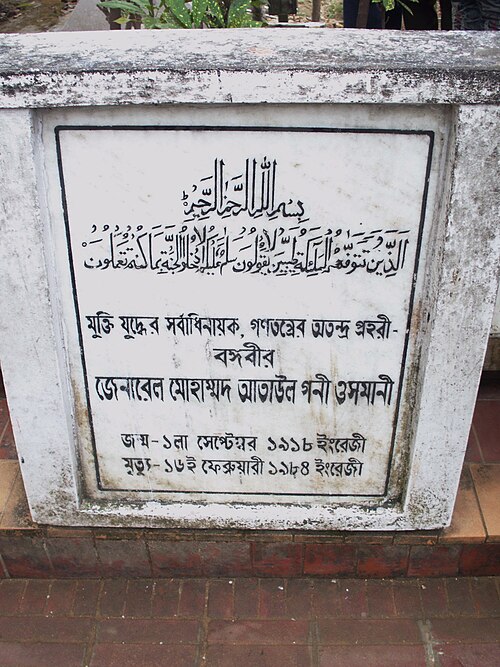 بِسْمِ اللهِ الرَّحْمٰنِ الرَّحِيْمِ
الَّذِيْنَ تَتَوَفّٰهُمُ الْمَلٰٓئِكَةُ طَيِّبِيْنَ يَقُوْلُوْنَ سَلٰمٌ عَلَيْكُمُ ادْخُلُوا الْجَنَّةَ بِمَا كُنْتُمْ تَعْمَلُوْنَ
মুক্তি যুদ্ধের সর্বাধিনায়ক, গণতন্ত্রের অতন্দ্র প্রহরী-
বঙ্গবীর
জেনারেল মোহাম্মদ আতাউল গনী ওসমানী
জন্ম-১লা সেপ্টেম্বর ১৯১৮ ইংরেজী
মৃত্যু-১৬ই ফেব্রুয়ারী ১৯৮৪ ইংরেজী